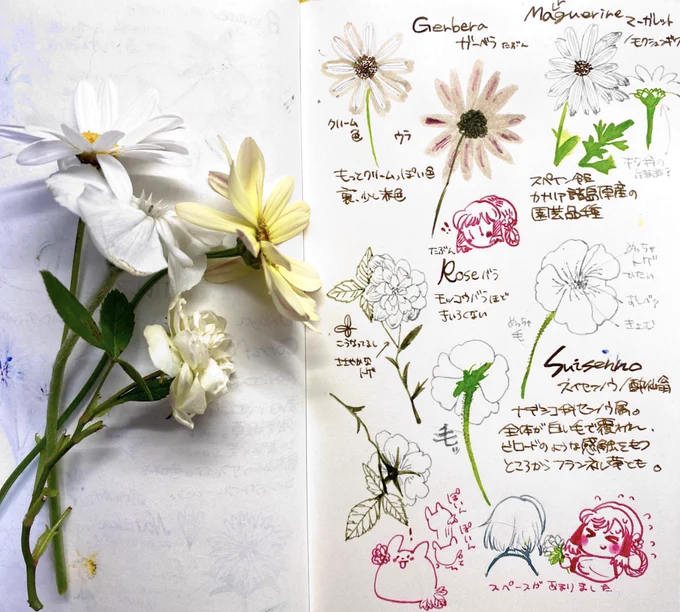 Gerbera
ガーベラ たぶん
クリーム
色
ウラ
もっとクリームっぽい色
裏、少し赤色
Marguerine マーガレット
/モクシュンギク
スペイン領
カナリア諸島原産の
園芸品種
たぶん
Rose バラ
モッコウバラほど
きいろくない
こうなってるし
ささやかな
トゲ
めっちゃ
毛
毛ッ
Suisenno
スイセンノウ/酔仙翁
ナデシコ科センノウ属。
全体が白い毛で覆われ、
ビロードのような感触をもつ
ところからフランネル草とも。
ぽいん
ぽいん
スペースがあまりました